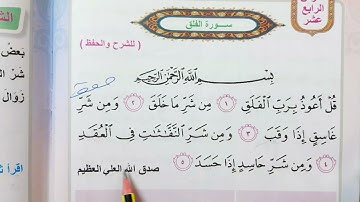 الرابع
عشر
سورة الفلق
( للشرح والحفظ )
بِسْمِ اللَّهِ الرَّحْمَٰنِ الرَّحِيمِ
قُلْ أَعُوذُ بِرَبِّ الْفَلَقِ ١ مِن شَرِّ مَا خَلَقَ ٢ وَمِن شَرِّ
غَاسِقٍ إِذَا وَقَبَ ٣ وَمِن شَرِّ النَّفَّاثَاتِ فِي الْعُقَدِ
٤ وَمِن شَرِّ حَاسِدٍ إِذَا حَسَدَ ٥ صدق الله العلي العظيم
بَعضُ
شَرَّ ال
زَوَالَ